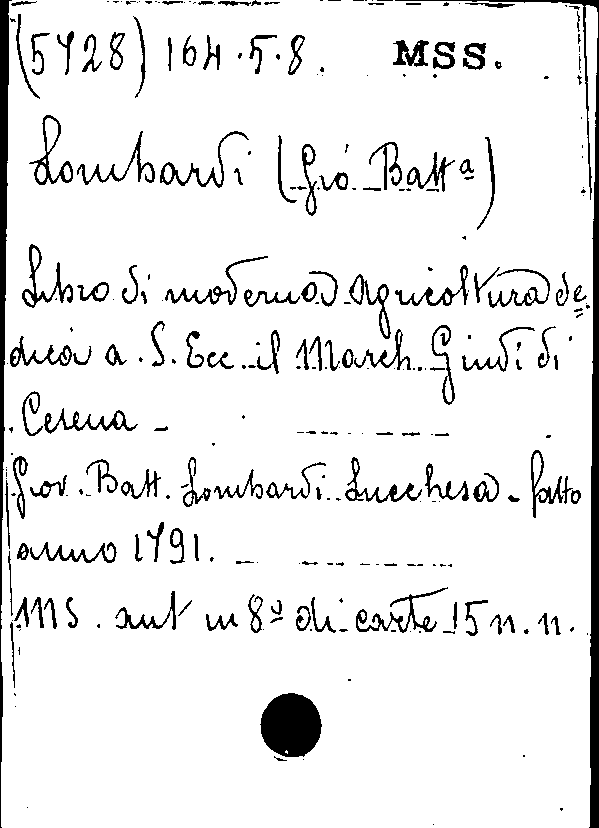 (5728) 164.5.8. MSS.
Lombardi (Gió Batt.ª)
Libro di moderna Agricoltura de=
dica a. S. Ecc. il March. Guidi di
Cesena -
Giov. Batt. Lombardi Lucchesa - fatto
anno 1791. -
MS. aut in 8º di carte 15 n. n.